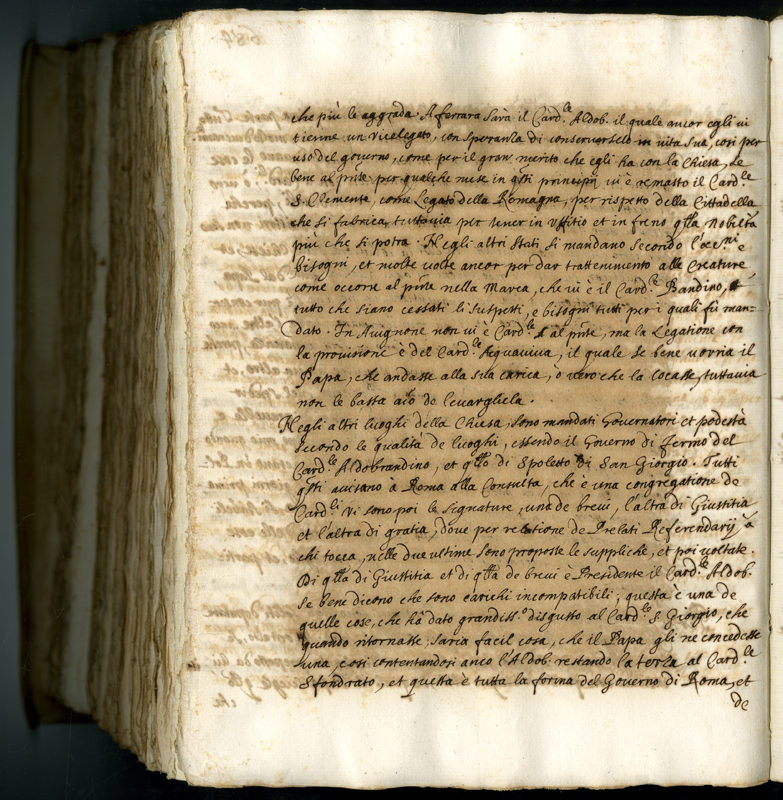 che più le aggrada. A ferrara sarà il Card.le Aldob. il quale ancor egli vi
tienne un Vicelegato, con speranza di conservarselo in vita sua, così per
uso del governo, come per il gran merito che egli ha con la Chiesa, Se
bene al pñte per qualche mese in q̃sti principij vi è remasto il Card.le
S. Clemente, come Legato della Romagna, per rispetto della Cittadella
che si fabrica, tuttavia per tener in uffitio et in freno q̃lla Nobeltà
più che si potrà. Negli altri Stati si mandano secondo l'occ.ni e
bisogni, et molte volte ancor per dar trattenimento alle Creature
come occorre al pñte nella Marca, che vi è il Card.le Bandino,
tutto che siano cessati li suspetti, e bisogni tutti per i quali fù man=
dato. In Avignone non vi è Card.le al pñte, ma la Legatione con
la provisione è del Card.le Acquaviva, il quale se bene vorria il
Papa, che andasse alla sua carica, ò vero che la locasse, tuttavia
non le basta aĩo de levargliela.
Negli altri luoghi della Chiesa, sono mandati Governatori et podestà
secondo le qualità de luoghi, essendo il Governo di fermo del
Card.le Aldobrandino, et q̃llo di Spoleto di San Giorgio. Tutti
q̃sti avisano à Roma alla Consulta, che è una congregatione de
Card.li Vi sono poi le signature, una de brevi, l'altra di Giustitia
et l'altra di gratia, dove per relatione de Prelati Referendarij à
chi tocca, nelle due ultime sono proposte le suppliche, et poi voltate.
Di q̃lla di Giustitia et di q̃lla de brevi è Presidente il Card.le Aldob.
se bene dicono che sono carichi incompatibili; questa è una de
quelle cose, che hà dato grandiss.o disgusto al Card.le S. Giorgio, che
quando ritornasse, saria facil cosa, che il Papa gli ne concedesse
una, e così contentandosi anco l'Aldob. restando la terza al Card.le
Sfondrato, et questa è tutta la forma del Governo di Roma, et
de